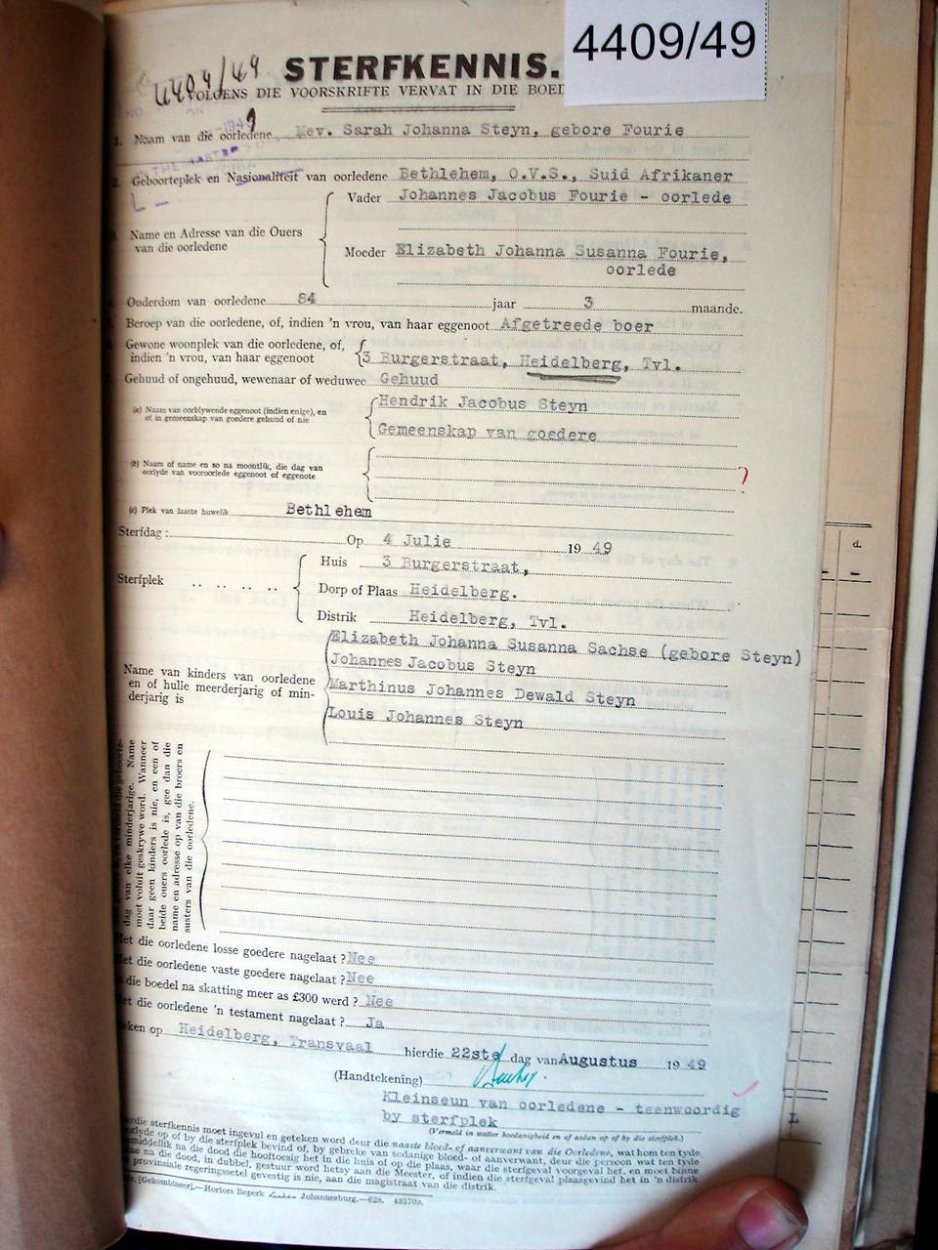 4409/49
4409/49
STERFKENNIS.
VOLGENS DIE VOORSKRIFTE VERVAT IN DIE BOED
1. Naam van die oorledene Mev. Sarah Johanna Steyn, gebore Fourie
THE MASTER
2. Geboorteplek en Nasionaliteit van oorledene Bethlehem, O.V.S., Suid Afrikaner
Vader Johannes Jacobus Fourie - oorlede
Name en Adresse van die Ouers
van die oorledene
Moeder Elizabeth Johanna Susanna Fourie,
oorlede
Ouderdom van oorledene 84 jaar 3 maande.
Beroep van die oorledene, of, indien 'n vrou, van haar eggenoot Afgetreede boer
Gewone woonplek van die oorledene, of,
indien 'n vrou, van haar eggenoot 3 Burgerstraat, Heidelberg, Tvl.
Gehuud of ongehuud, wewenaar of weduwee Gehuud
(a) Naam van oorblywende eggenoot (indien enige), en
of in gemeenskap van goedere gehuud of nie
Hendrik Jacobus Steyn
Gemeenskap van goedere
(b) Naam of name en so na moontlik, die dag van
oorlyde van vooroorlede eggenoot of eggenote
(c) Plek van laaste huwelik Bethlehem
Sterfdag : Op 4 Julie 19 49
Huis 3 Burgerstraat,
Sterfplek
Dorp of Plaas Heidelberg.
Distrik Heidelberg, Tvl.
Name van kinders van oorledene
en of hulle meerderjarig of min-
derjarig is
Elizabeth Johanna Susanna Sachse (gebore Steyn)
Johannes Jacobus Steyn
Marthinus Johannes Dewald Steyn
Louis Johannes Steyn
dag van elke minderjarige. Name
moet voluit geskrywe word. Wanneer
daar geen kinders is nie, en een of
beide ouers oorlede is, gee dan die
name en adresse op van die broers en
susters van die oorledene.
et die oorledene losse goedere nagelaat ? Nee
et die oorledene vaste goedere nagelaat ? Nee
die boedel na skatting meer as £300 werd ? Nee
et die oorledene 'n testament nagelaat ? Ja
eken op Heidelberg, Transvaal hierdie 22ste dag van Augustus 19 49
(Handtekening)
Kleinseun van oorledene - teenwoordig
by sterfplek
(Vermeld in watter hoedanigheid en of sodan op of by die sterfplek.)
erdie sterfkennis moet ingevul en geteken word deur die naaste bloed- of aanverwant van die Oorledene, wat hom ten tyde
orlyde op of by die sterfplek bevind of, by gebreke van sodanige bloed- of aanverwant, deur die persoon wat ten tyde
middellik na die dood die hooftoesig het in die huis of op die plaas, waar die sterfgeval voorgeval het, en moet binne
ae na die dood, in dubbel, gestuur word hetsy aan die Meester, of indien die sterfgeval plaasgevind het in 'n distrik
provinsiale regeringssetel gevestig is nie, aan die magistraat van die distrik.
[Gekombineer].—Hortors Beperk Johannesburg.—628. 435709.
d.